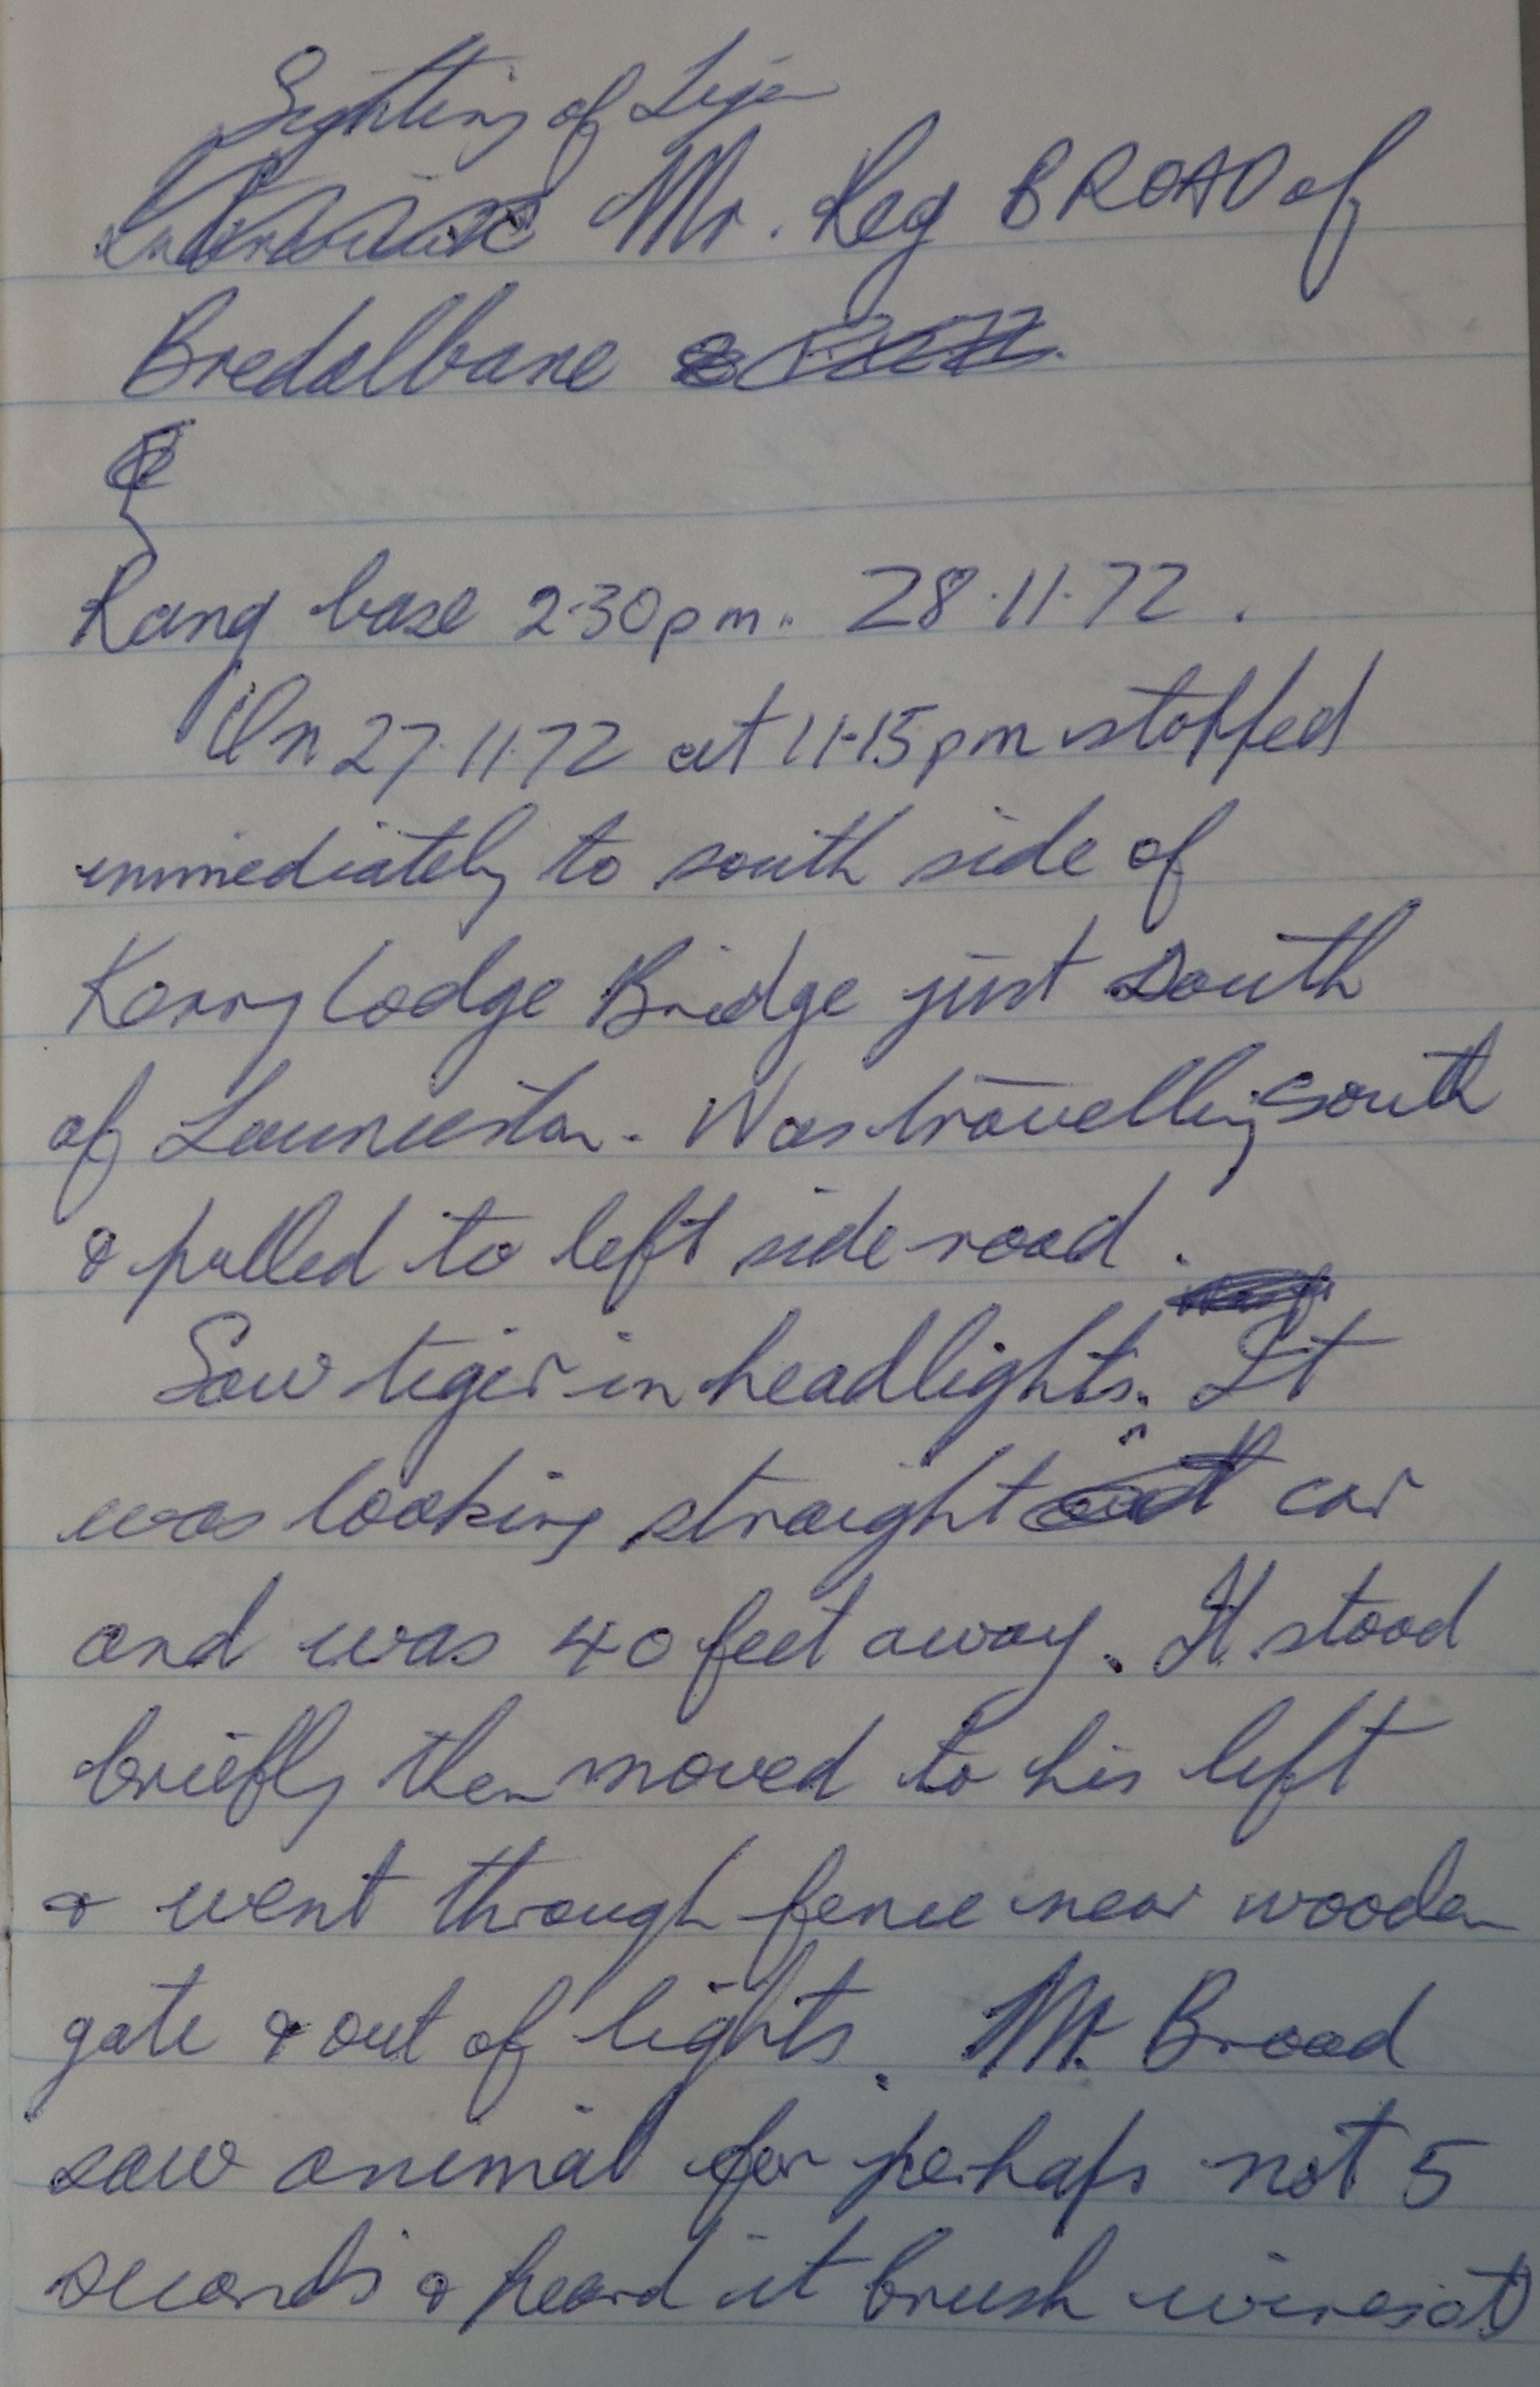 Sighting of Tiger
Mr. Reg BROAD of
Bredalbane
Rang base 2.30pm. 28.11.72.
On 27.11.72 at 11.15pm stopped
immediately to south side of
Kerry Lodge Bridge just South
of Launceston. Was travelling south
& pulled to left side road.
Saw tiger in headlights. It
was looking straight at car
and was 40 feet away. It stood
briefly then moved to his left
& went through fence near wooden
gate & out of lights. Mr. Broad
saw animal for perhaps not 5
seconds & heard it brush wires at